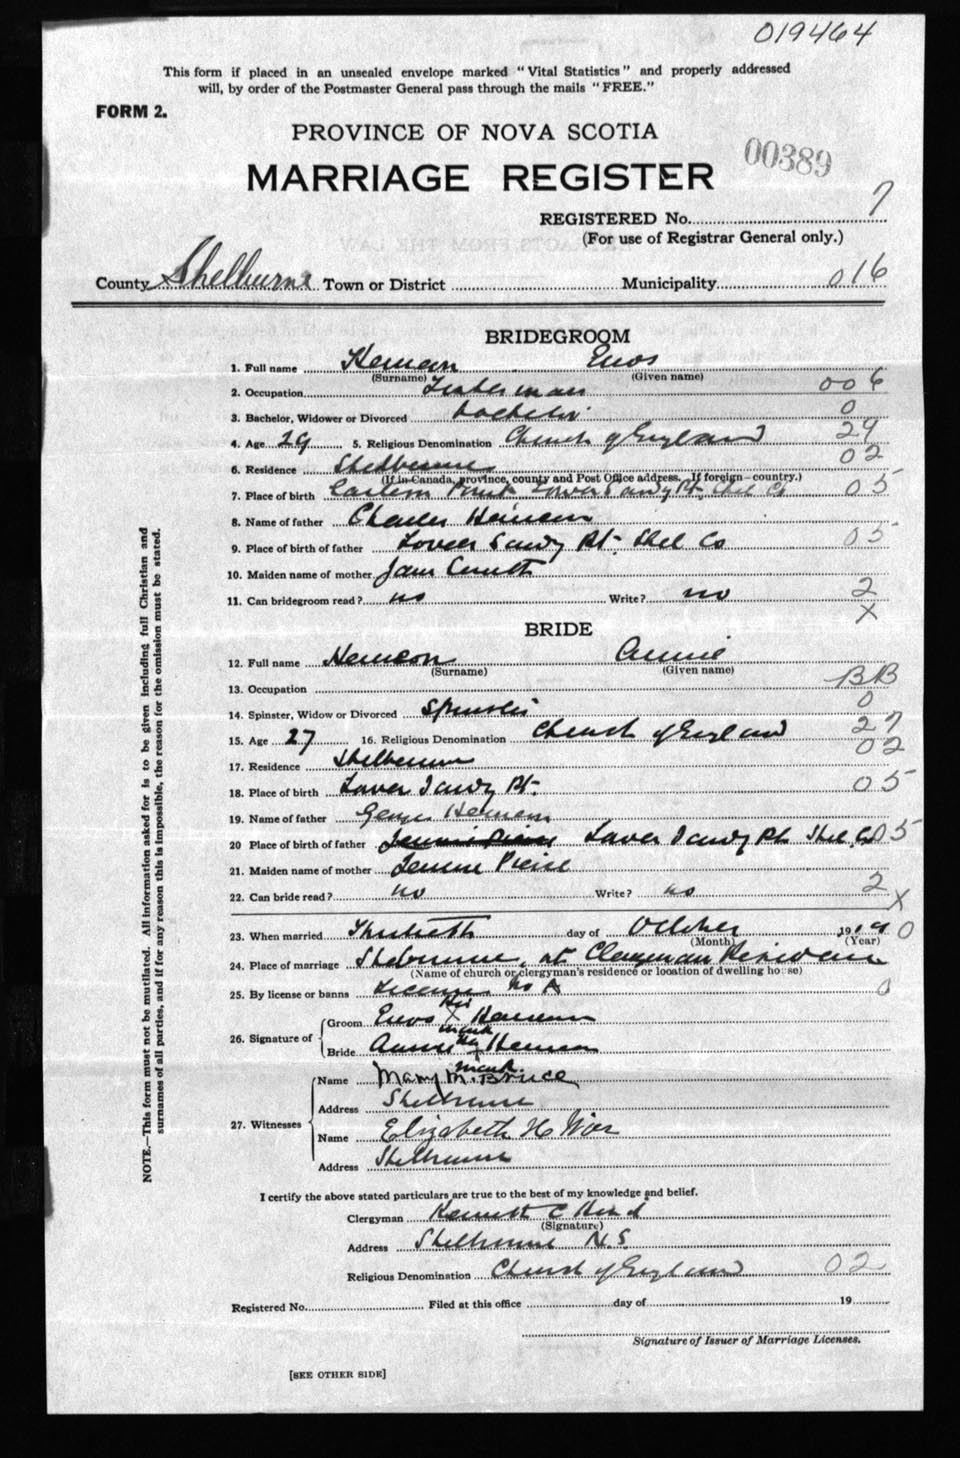 019464
This form if placed in an unsealed envelope marked "Vital Statistics" and properly addressed
will, by order of the Postmaster General pass through the mails "FREE."
FORM 2.
PROVINCE OF NOVA SCOTIA
00389
MARRIAGE REGISTER
REGISTERED No. 7
(For use of Registrar General only.)
County Shelburne Town or District Municipality 016
BRIDEGROOM
1. Full name Hemeon Enos
(Surname) (Given name)
2. Occupation Fisherman 006
3. Bachelor, Widower or Divorced bachelor 0
4. Age 29 5. Religious Denomination Church of England 29
6. Residence Shelburne 02
(If in Canada, province, county and Post Office address. If foreign—country.)
7. Place of birth Point Lower Sandy Pt, Shel Co 05
8. Name of father Charles Hemeon
9. Place of birth of father Lower Sandy Pt. Shel Co 05
10. Maiden name of mother Jane
11. Can bridegroom read? no Write? no 2
X
BRIDE
12. Full name Hemeon Annie
(Surname) (Given name)
13. Occupation BB
14. Spinster, Widow or Divorced Spinster 0
15. Age 27 16. Religious Denomination Church of England 27
17. Residence Shelburne 02
18. Place of birth Lower Sandy Pt. 05
19. Name of father George Hemeon
20 Place of birth of father Lower Sandy Pt Shel Co 05
21. Maiden name of mother Pierce
22. Can bride read? no Write? no 2
X
23. When married day of October 19 0
(Month) (Year)
24. Place of marriage Shelburne, at Clergyman Residence
(Name of church or clergyman's residence or location of dwelling house)
25. By license or banns License No A 0
his
26. Signature of Groom Enos X Hemeon
mark her
Bride Annie X Hemeon
mark
27. Witnesses Name Mary M. Bruce
Address Shelburne
Name Elizabeth H Wier
Address Shelburne
I certify the above stated particulars are true to the best of my knowledge and belief.
Clergyman Kenneth C Hind
(Signature)
Address Shelburne N.S.
Religious Denomination Church of England 02
Registered No. Filed at this office day of 19
Signature of Issuer of Marriage Licenses.
[SEE OTHER SIDE]
NOTE.—This form must not be mutilated. All information asked for is to be given including full Christian and
surnames of all parties, and if for any reason this is impossible, the reason for the omission must be stated.